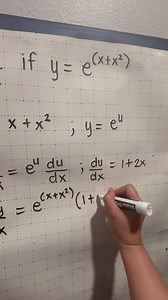 if y = e^(x+x²)
x + x² ; y = e^u
= e^u du/dx ; du/dx = 1+2x
= e^(x+x²) (1+